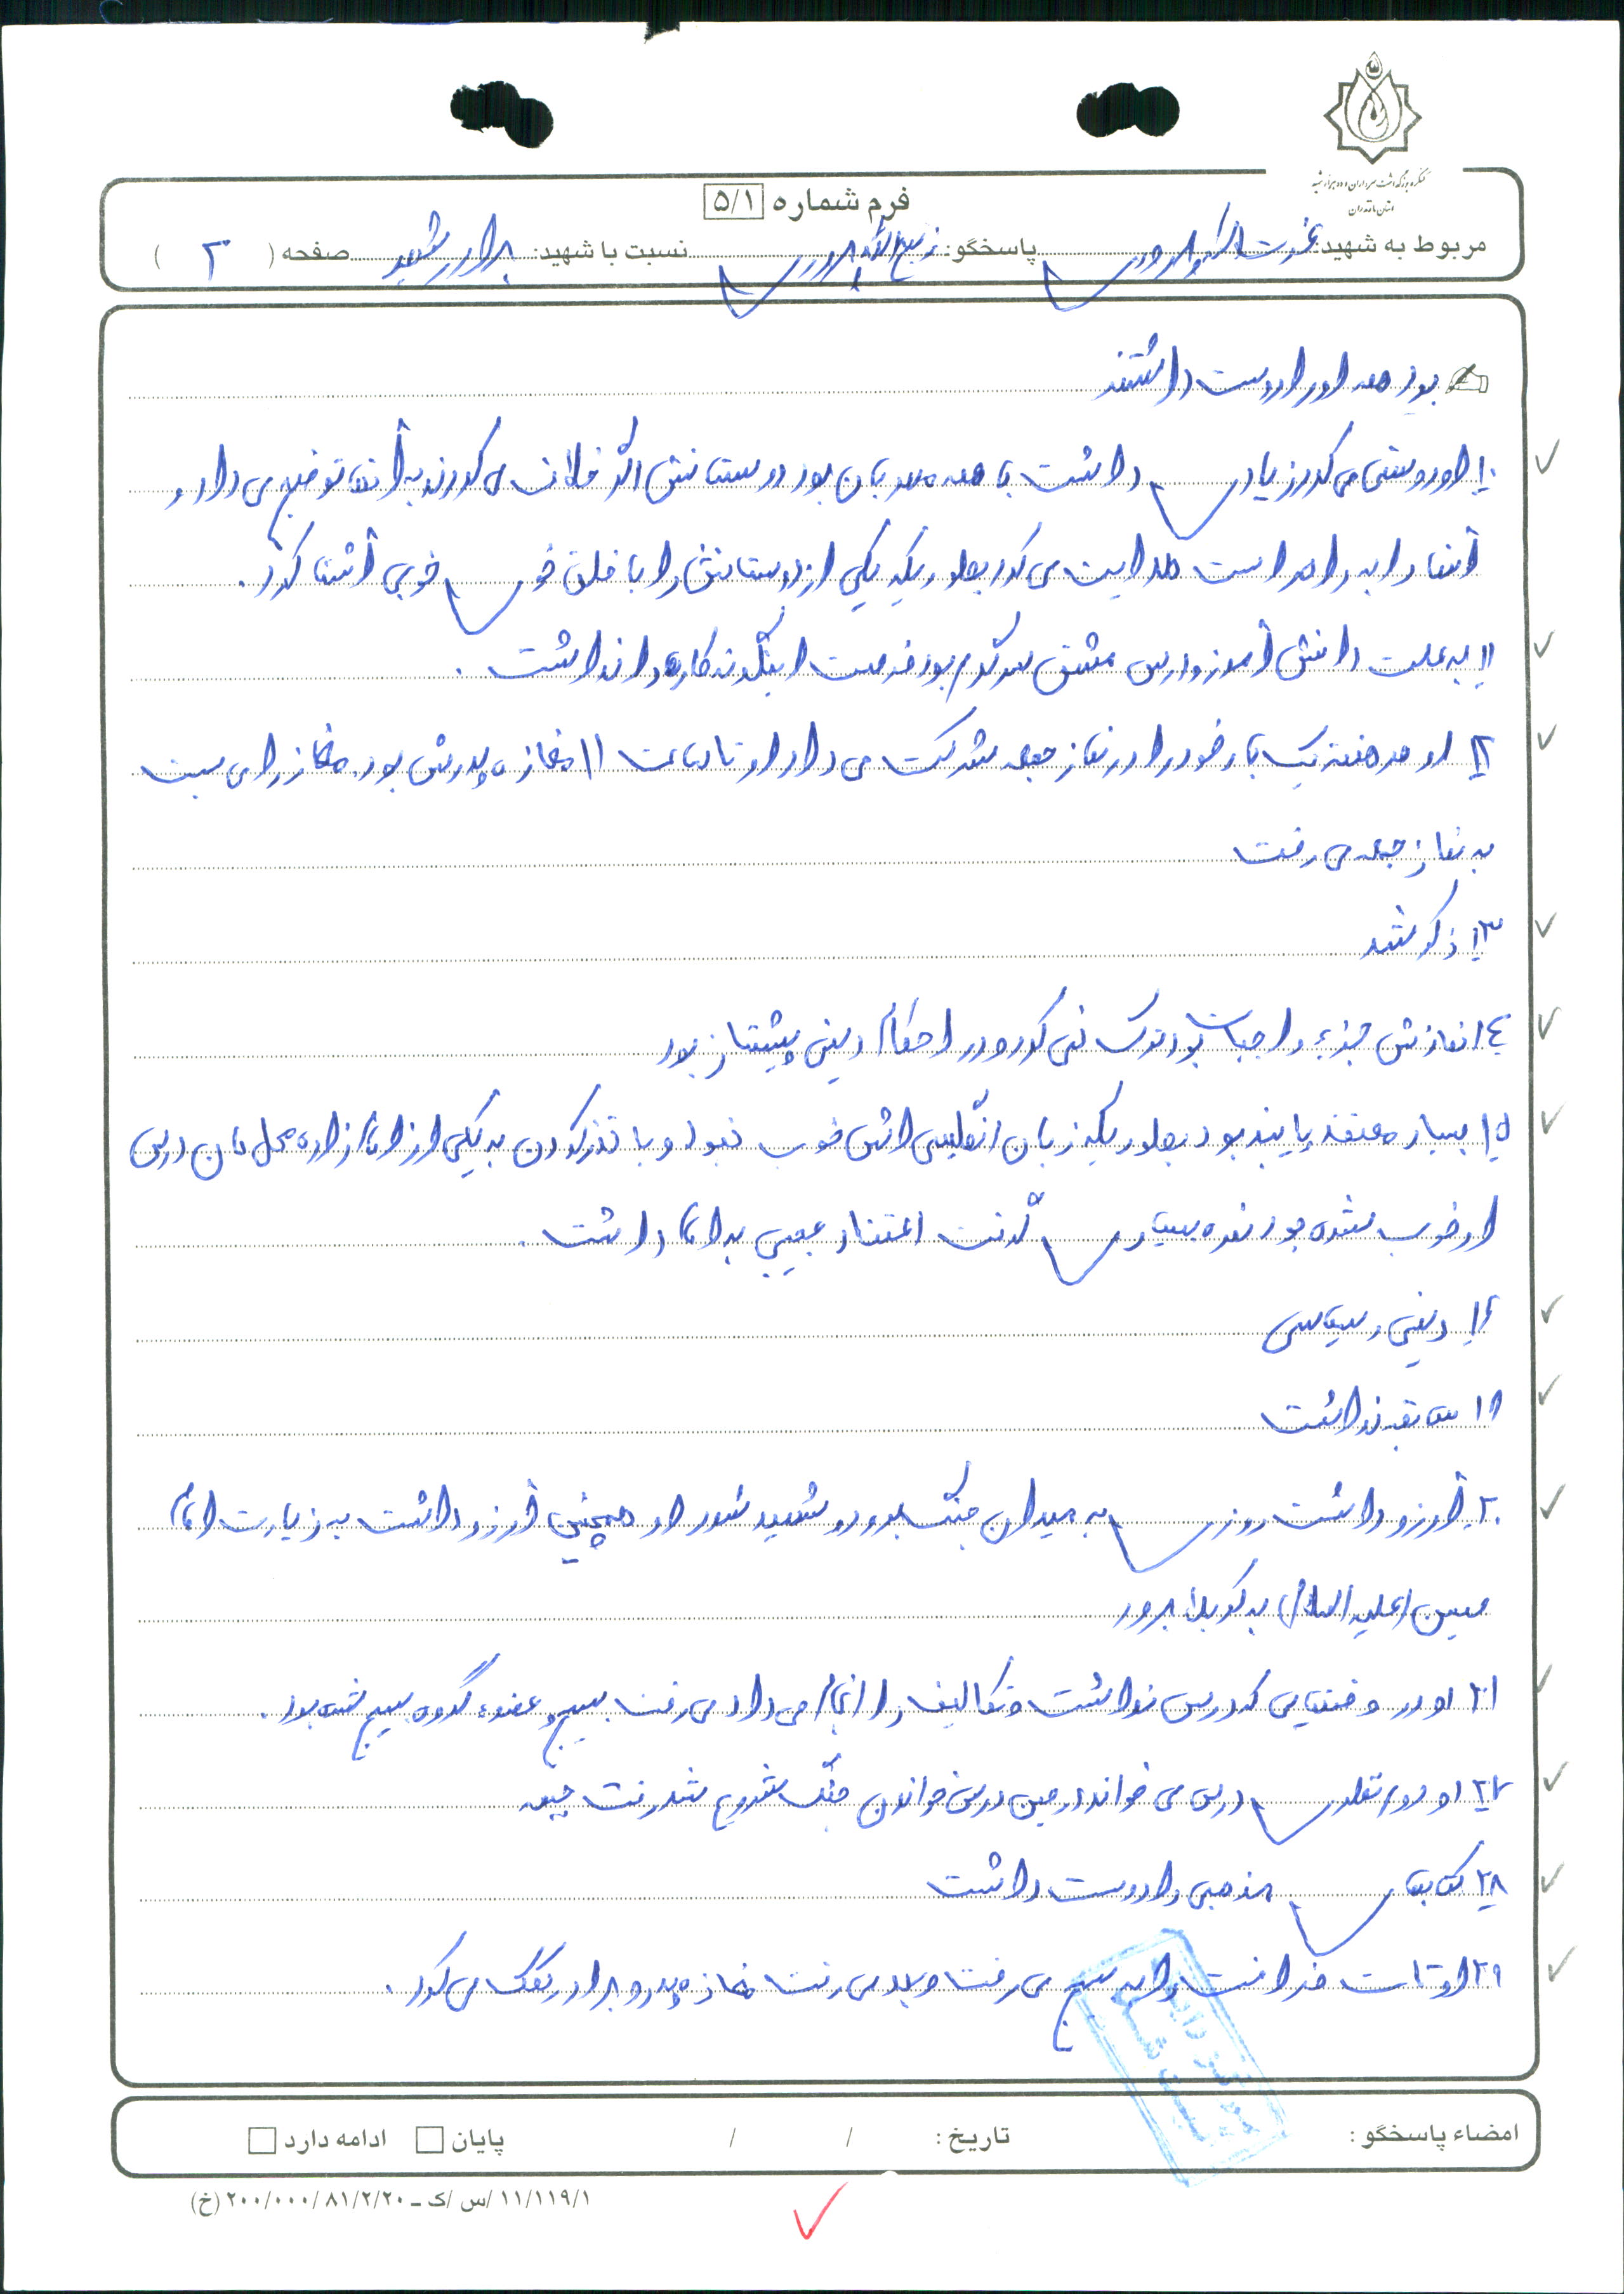 کنگره بزرگداشت سرداران و ده هزار شهید
استان مازندران
فرم شماره ۵/۱
مربوط به شهید: پاسخگو: ذبیح الله نسبت با شهید: برادر شهید صفحه ( ۲ )
بود همه او را دوست داشتند
۱۰ـ او دوستی می کرد زیادی داشت با همه مهربان بود دوستانش اگر خلاف می کردند به آنها توضیح می داد و
آنها را به راه راست هدایت می کرد بطوریکه یکی از دوستانش را با خلق خوی خوبی آشنا کرد.
۱۱ـ به علت دانش آموز و درس مشق سرگرم بود فرصت اینگونه کارها را نداشت.
۱۲ـ او هر هفته یک بار خود را در نماز جمعه شرکت می داد او تا ساعت ۱۱ مغازه پدرش بود. مغازه را می بست
به نماز جمعه می رفت
۱۳ـ ذکر شد
۱۴ـ نمازش جزء واجبات بود ترک نمی کرد و در احکام دینی پیشتاز بود
۱۵ـ بسیار معتقد پایبند بود بطوریکه زبان انگلیسی اش خوب نبود و با نذر کردن به یکی از امام زاده محل مان درس
او خوب شده بود نمره بسیاری گرفت اعتقاد عجیبی به امام داشت.
۱۶ـ دینی و سیاسی
۱۹ سابقه نداشت
۲۰ـ آرزو داشت روزی به میدان جنگ برود و شهید شود او همچنین آرزو داشت به زیارت امام
حسین (علیه السلام) به کربلا برود
۲۱ او در وقتهایی که درس نداشت و تکالیف را انجام می داد می رفت بسیج و عضو گروه بسیج شده بود.
۲۲ـ او دوم نظری درس می خواند در حین درس خواندن جنگ شروع شد رفت جبهه
۲۸ـ کتابهای مذهبی را دوست داشت
۲۹ اوقات فراغت را به بسیج می رفت و بعد می رفت مغازه پدر و برادر کمک می کرد.
امضاء پاسخگو : تاریخ : / / پایان ادامه دارد
۱۱/۱۱۹/۱ /س /ک ـ ۲۰۰/۰۰۰/۸۱/۲/۲۰ (خ)